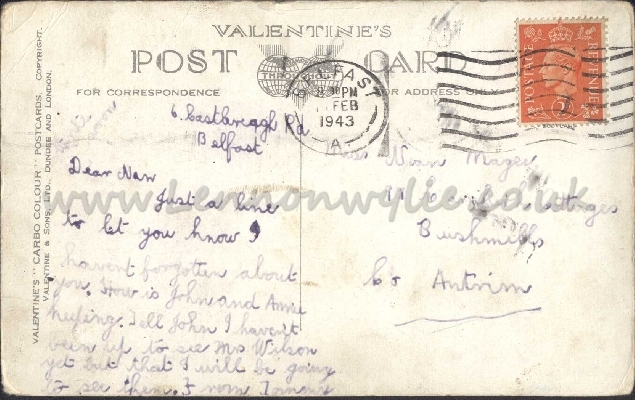 VALENTINE'S
POST CARD
THROUGHOUT
FOR CORRESPONDENCE
FOR ADDRESS ONLY
BELFAST
8. PM
FEB
1943
A
POSTAGE
REVENUE
6. Castlereagh Rd
Belfast
Dear Nan
Just a line
to let you know I
havent forgotten about
you. How is John and Annie
keeping. Tell John I haven't
been up to see Mrs Wilson
yet but that I will be going
to see them. From Tommy
Miss Nan Magee
Cottages
Bushmills
Co Antrim
www.Lennonwylie.co.uk
VALENTINE'S "CARBO COLOUR" POSTCARDS. COPYRIGHT.
VALENTINE & SONS, LTD., DUNDEE AND LONDON.